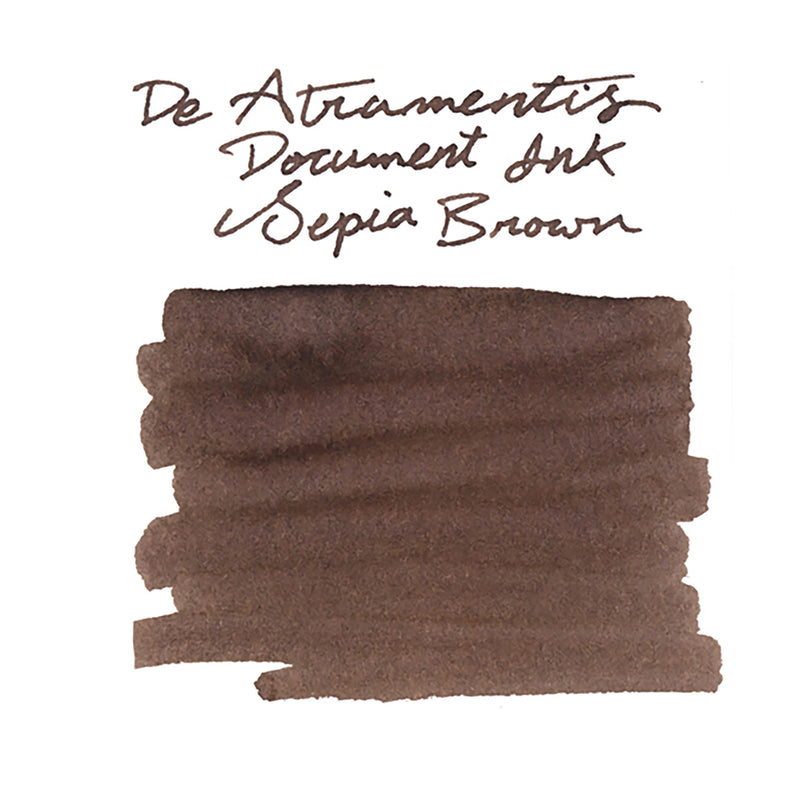 De Atramentis
Document Ink
Sepia Brown